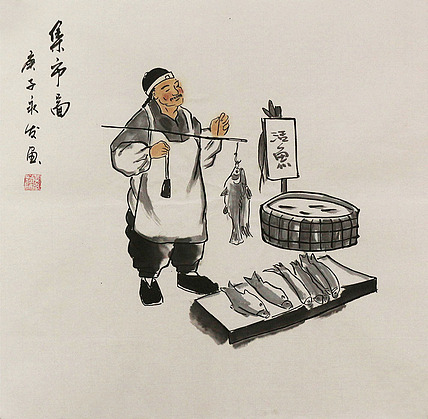 集市图
庚子永发画
活魚